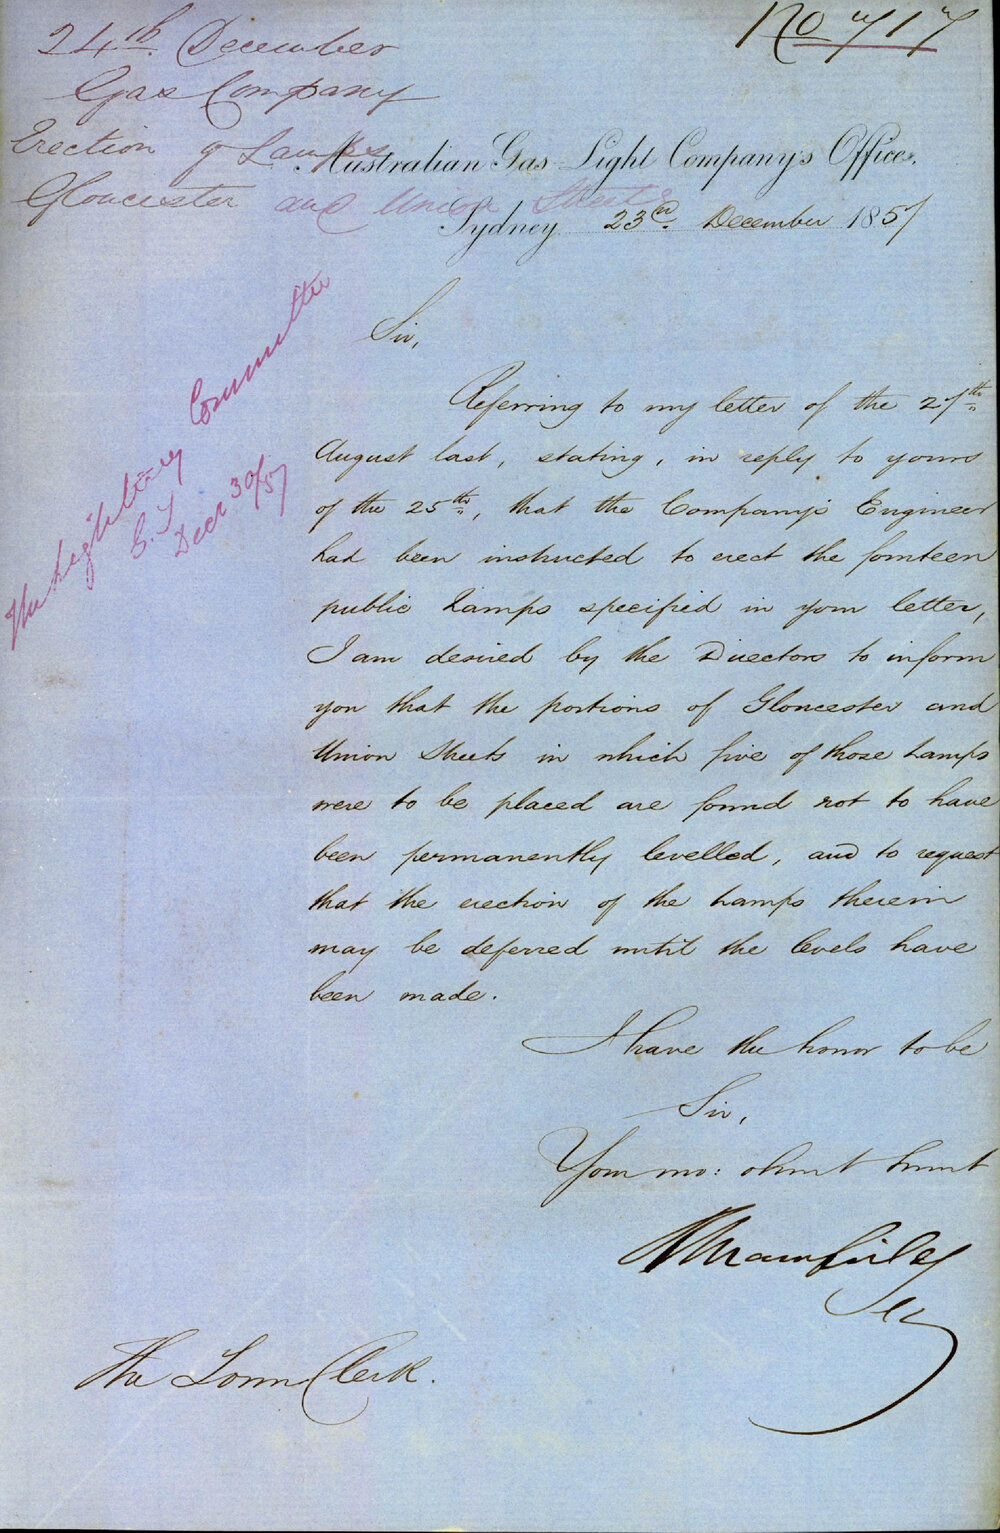 24th. December
Gas Company
Erection of Lamps
Gloucester and Union Streets
No 717
Australian Gas Light Company's Office,
Sydney 23rd. December 1857
The Lighting Committee
Decr 30/57
Sir,
Referring to my letter of the 27th
August last, stating, in reply to yours
of the 25th, that the Company's Engineer
had been instructed to erect the fourteen
public Lamps specified in your letter,
I am desired by the Directors to inform
you that the portions of Gloucester and
Union Streets in which five of those Lamps
were to be placed are found not to have
been permanently levelled, and to request
that the erection of the Lamps therein
may be deferred until the levels have
been made.
I have the honor to be
Sir,
Your mo: obedt servt
Secy
The Town Clerk.